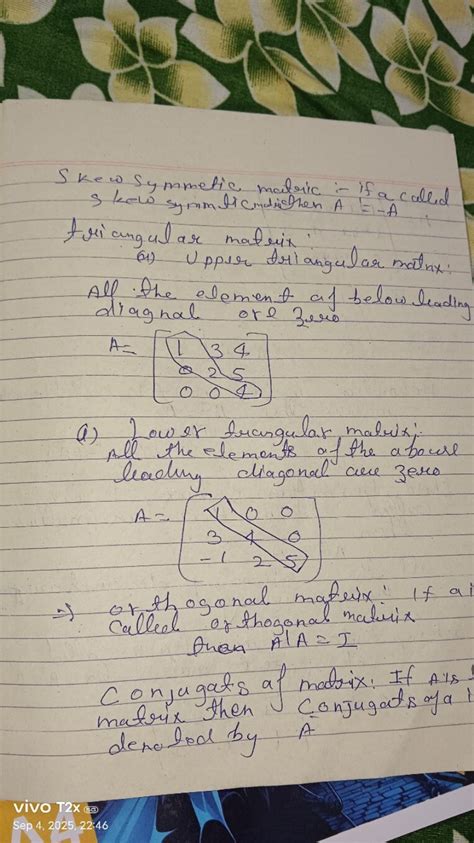 Skew Symmetic matric :- if a called
skew symmtic matric then A' = -A
triangular matrix:
Upper triangular matrix:
All the element of below leading
diagnal are zero
A= [ 1 3 4
0 2 5
0 0 4 ]
a) Lower triangular matrix;
All the elements of the abouve
leading diagonal are zero
A = [ 1 0 0
3 4 0
-1 2 5 ]
=> orthogonal matrix: If a i
Called orthogonal matrix
then A'A = I
Conjugats of matrix: If A is
matrix then Conjugats of a
denoted by A
vivo T2x 5G
Sep 4, 2025, 22:46